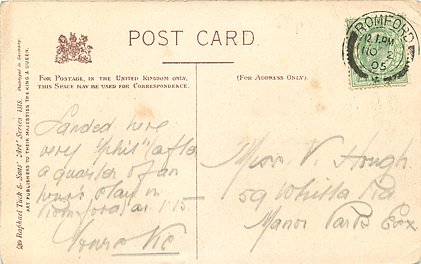 POST CARD
FOR POSTAGE, IN THE UNITED KINGDOM ONLY,
THIS SPACE MAY BE USED FOR CORRESPONDENCE.
(FOR ADDRESS ONLY.)
ROMFORD
12.1 PM
NO 2
05
Raphael Tuck & Sons' "Art" Series 1318. Photographed in Germany.
ART PUBLISHERS TO THEIR MAJESTIES THE KING & QUEEN.
Landed here
very "phil" after
a quarter of an
hour's stay in
Romford at 1.15
Yours Vic
Miss V. Hough
59 Whitta Rd
Manor Park Essx